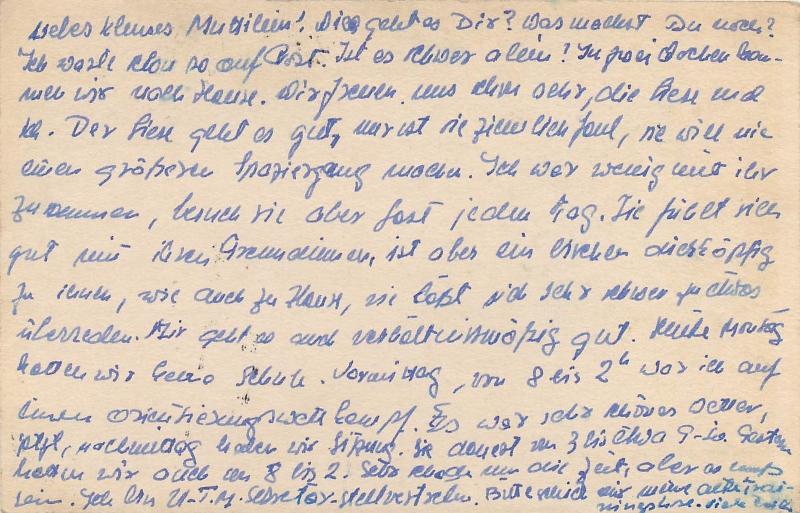 liebes kleines Muttilein! Wie geht es Dir? Was machst Du noch?
Ich warte schon so auf Post. Ist es schwer allein? In zwei Wochen kom-
men wir nach Hause. Wir freuen uns schon sehr, die Liese und
ich. Der Liese geht es gut, nur ist sie ziemlich faul, sie will nie
einen größeren Spaziergang machen. Ich war wenig mit ihr
zusammen, besuch sie aber fast jeden Tag. Sie fühlt sich
gut mit ihren Freundinnen, ist aber ein bischen dickköpfig
zu ihnen, wie auch zu Hause, sie läßt sich sehr schwer zu etwas
überreden. Mir geht es auch verhältnismäßig gut. Heute Montag
hatten wir keine Schule. Vormittag, von 8 bis 2ʰ war ich auf
einem orientierungswettkampf. Es war sehr schönes Wetter,
jetzt, nachmittag haben wir Sitzung. Sie dauert von 3 bis etwa 9-10. Gestern
hatten wir auch von 8 bis 2. Sehr schade um die Zeit, aber es muß
sein. Ich bin U.T.M. Sekretär-stellvertreter. Bitte schick mir meine alte trai-
ningshose. Viele